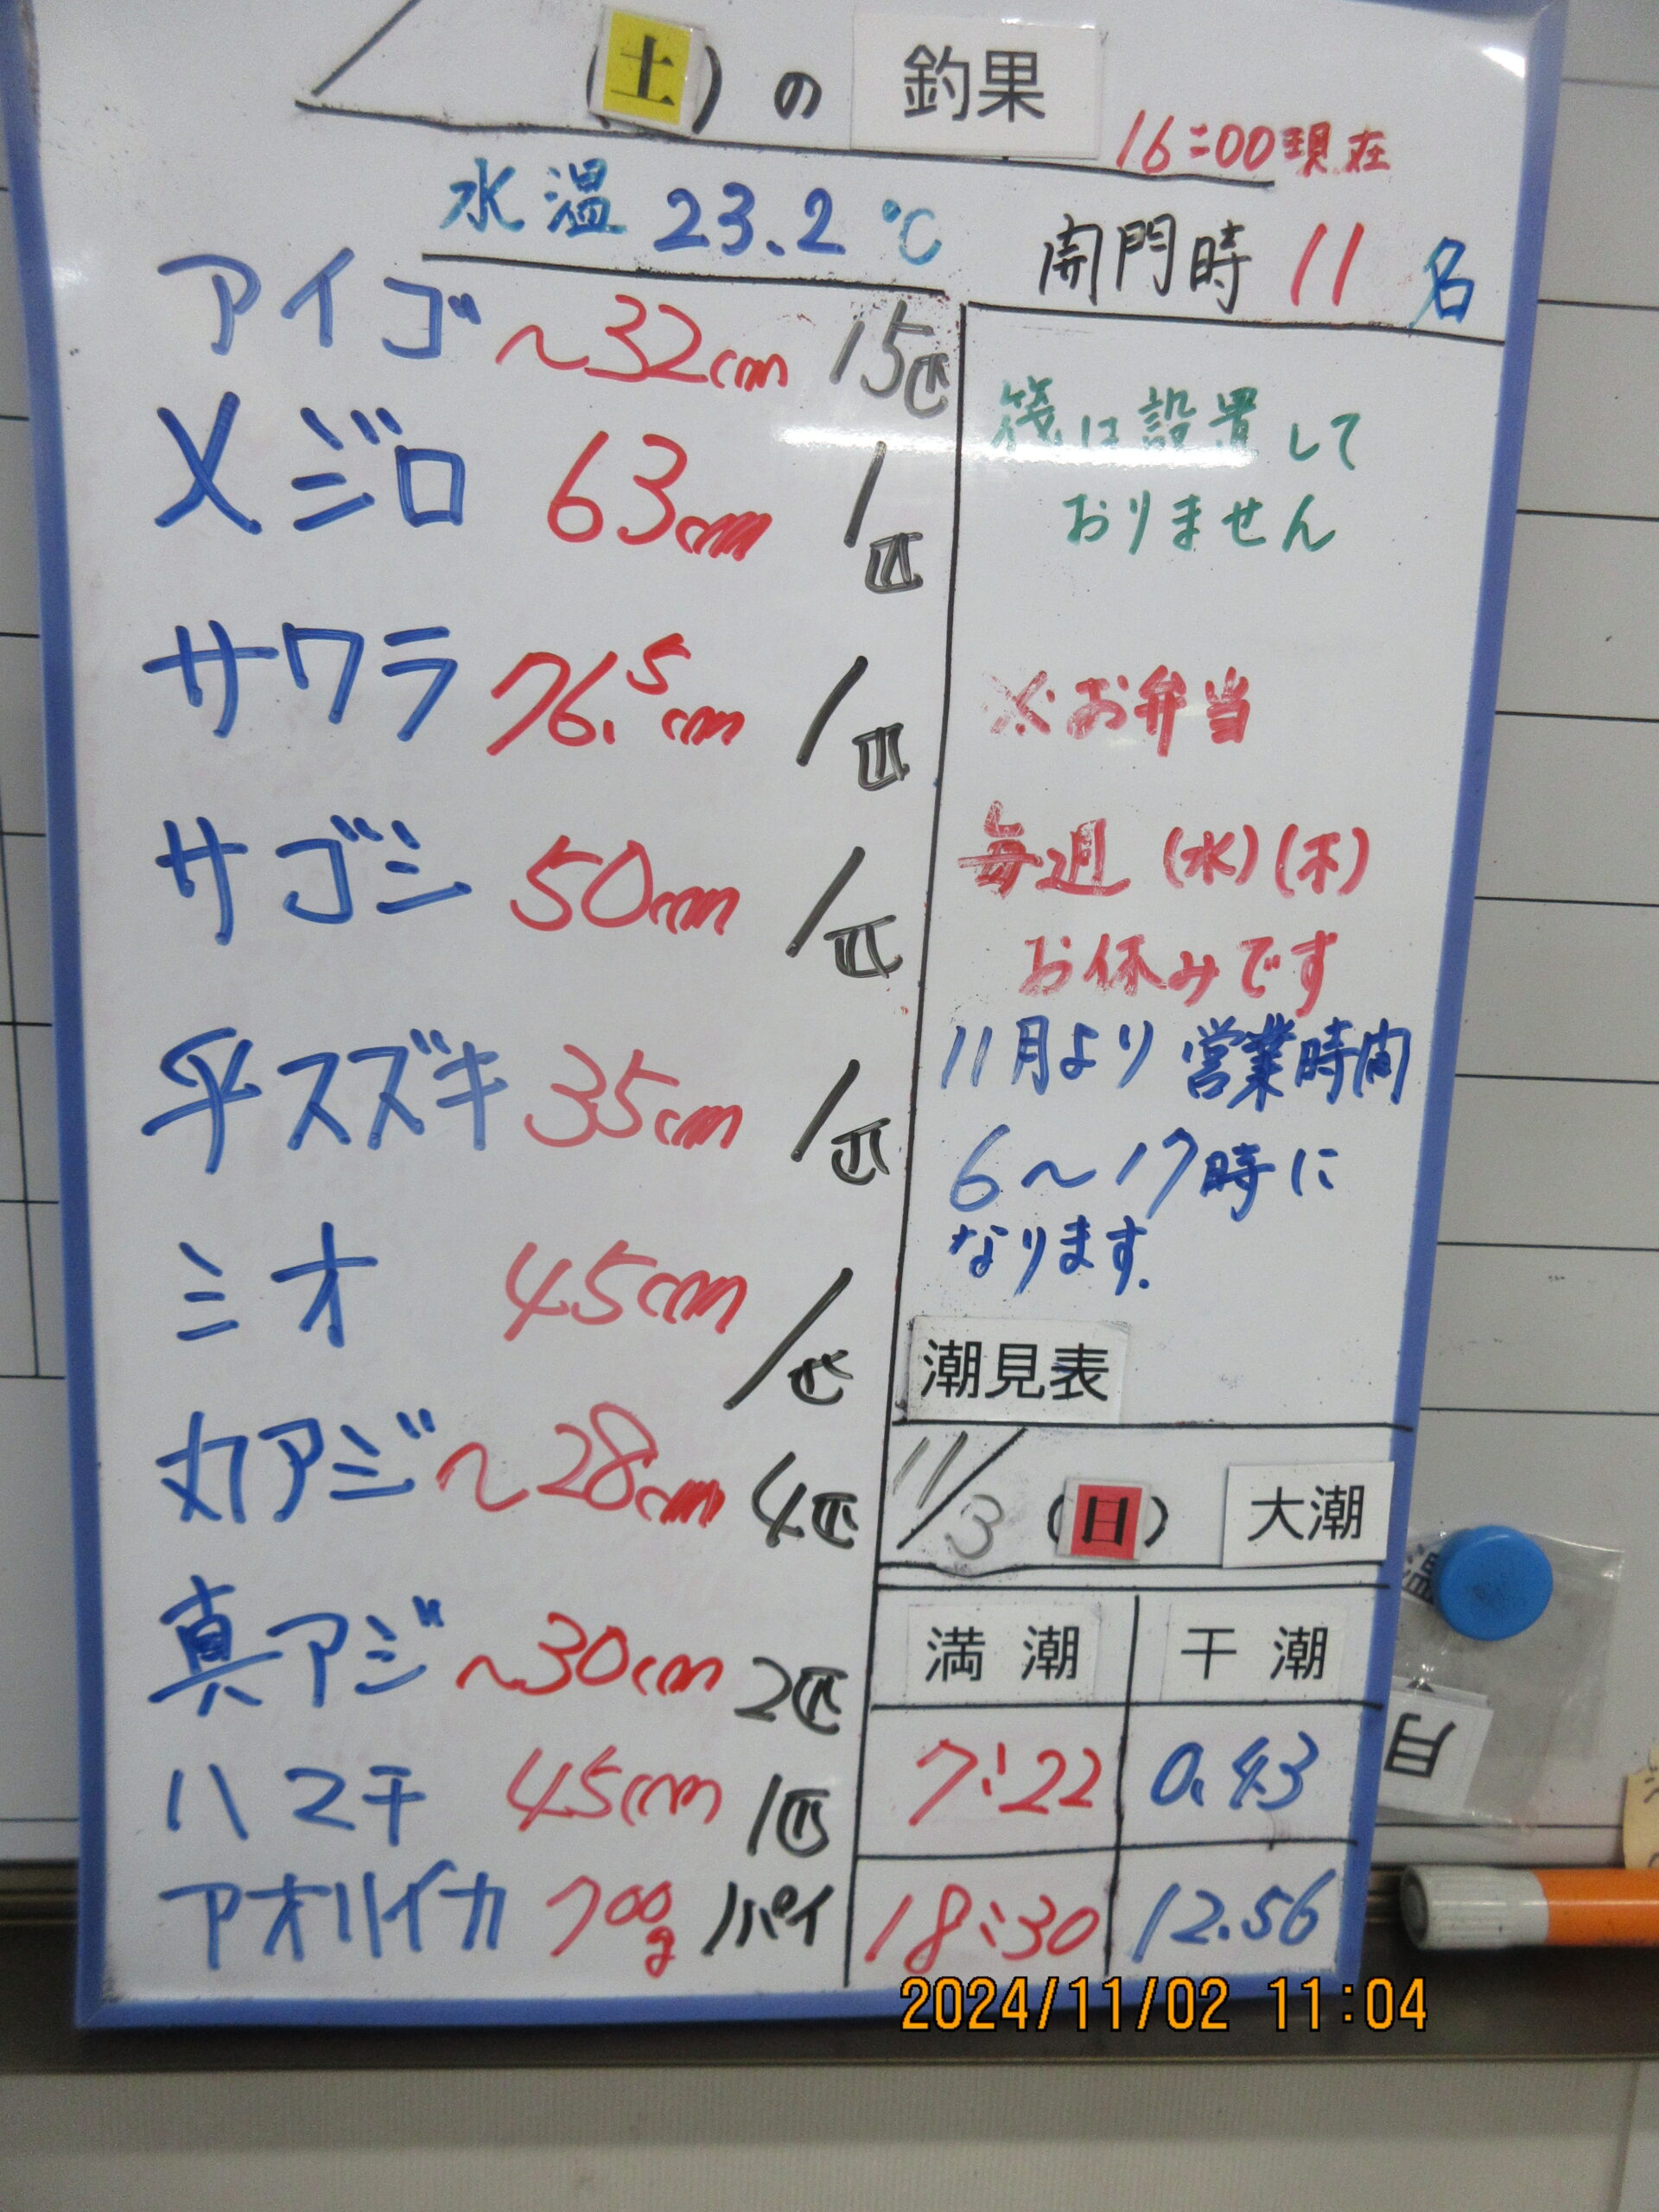 (土)の 釣果
16:00現在
水温 23.2℃
開門時 11名
アイゴ ~32cm 15匹
メジロ 63cm 1匹
サワラ 76.5cm 1匹
サゴシ 50cm 1匹
平スズキ 35cm 1匹
ミオ 45cm 1匹
丸アジ ~28cm 4匹
真アジ ~30cm 2匹
ハマチ 45cm 1匹
アオリイカ 700g 1パイ
筏は設置して
おりません
※お弁当
毎週(水)(木)
お休みです
11月より営業時間
6~17時に
なります.
潮見表
11/3(日) 大潮
満潮 干潮
7:22 0.43
18:30 12.56
月
2024/11/02 11:04